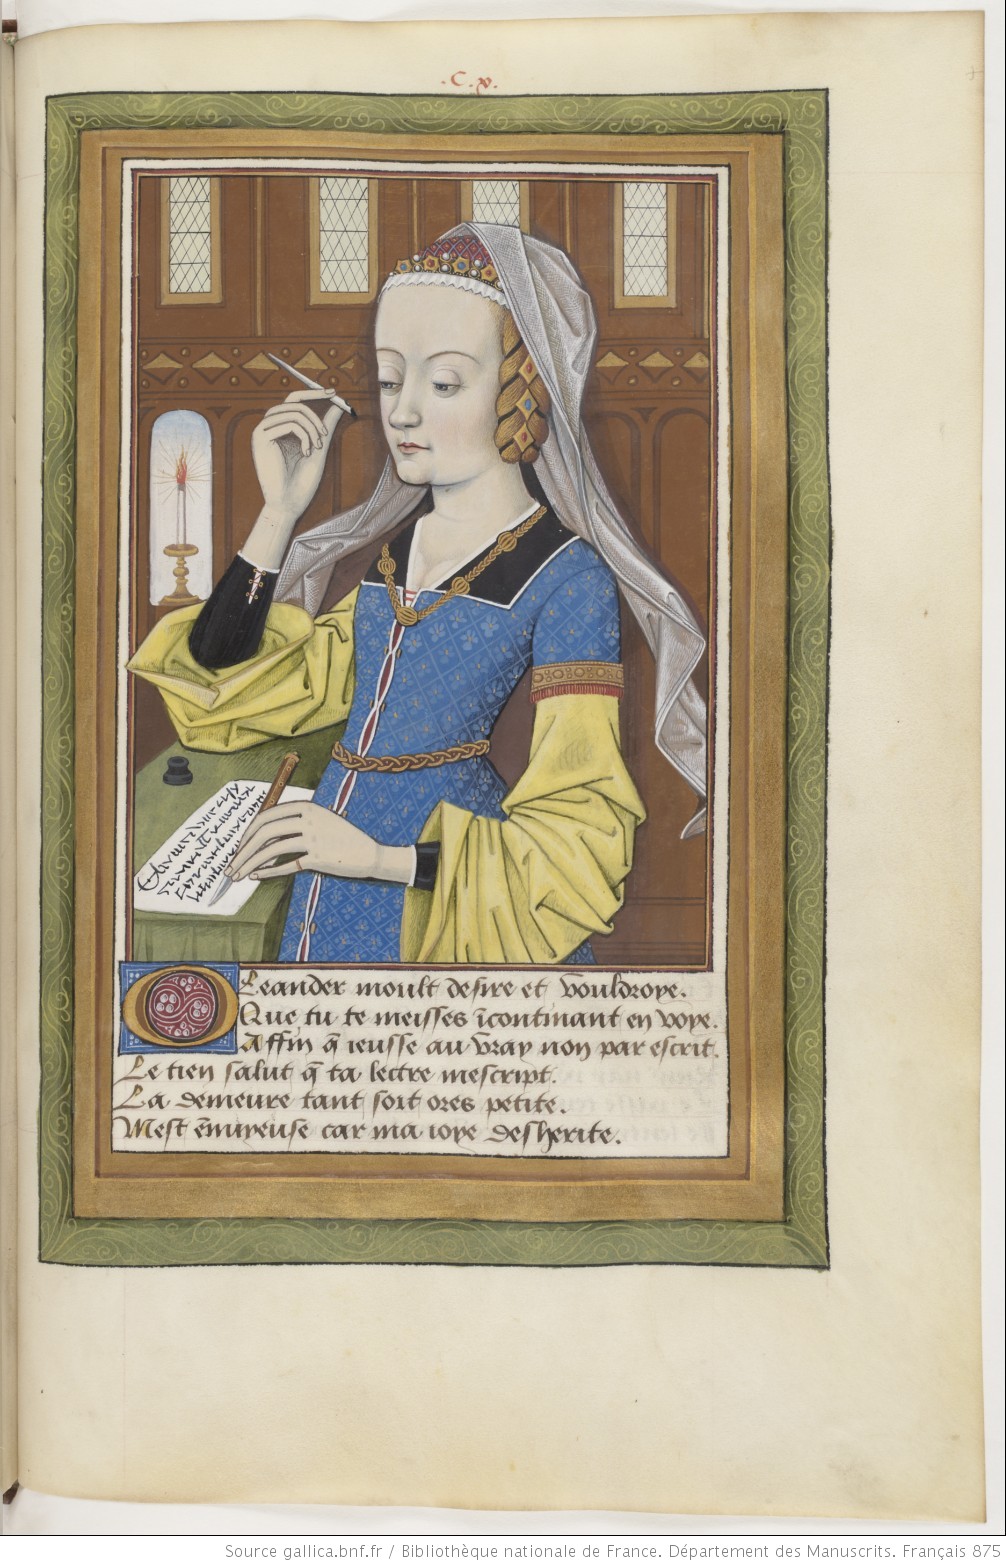 .C.v.
O Leander moult desire et vouldroye.
Que tu te meisses īcontinant en voye.
Affin q̄ ieusse au vray non par escrit.
Le tien salut q̄ ta lectre mescript.
La demeure tant soit ores petite.
Mest ēnuyeuse car ma ioye desherite.
Source gallica.bnf.fr / Bibliothèque nationale de France. Département des Manuscrits. Français 875